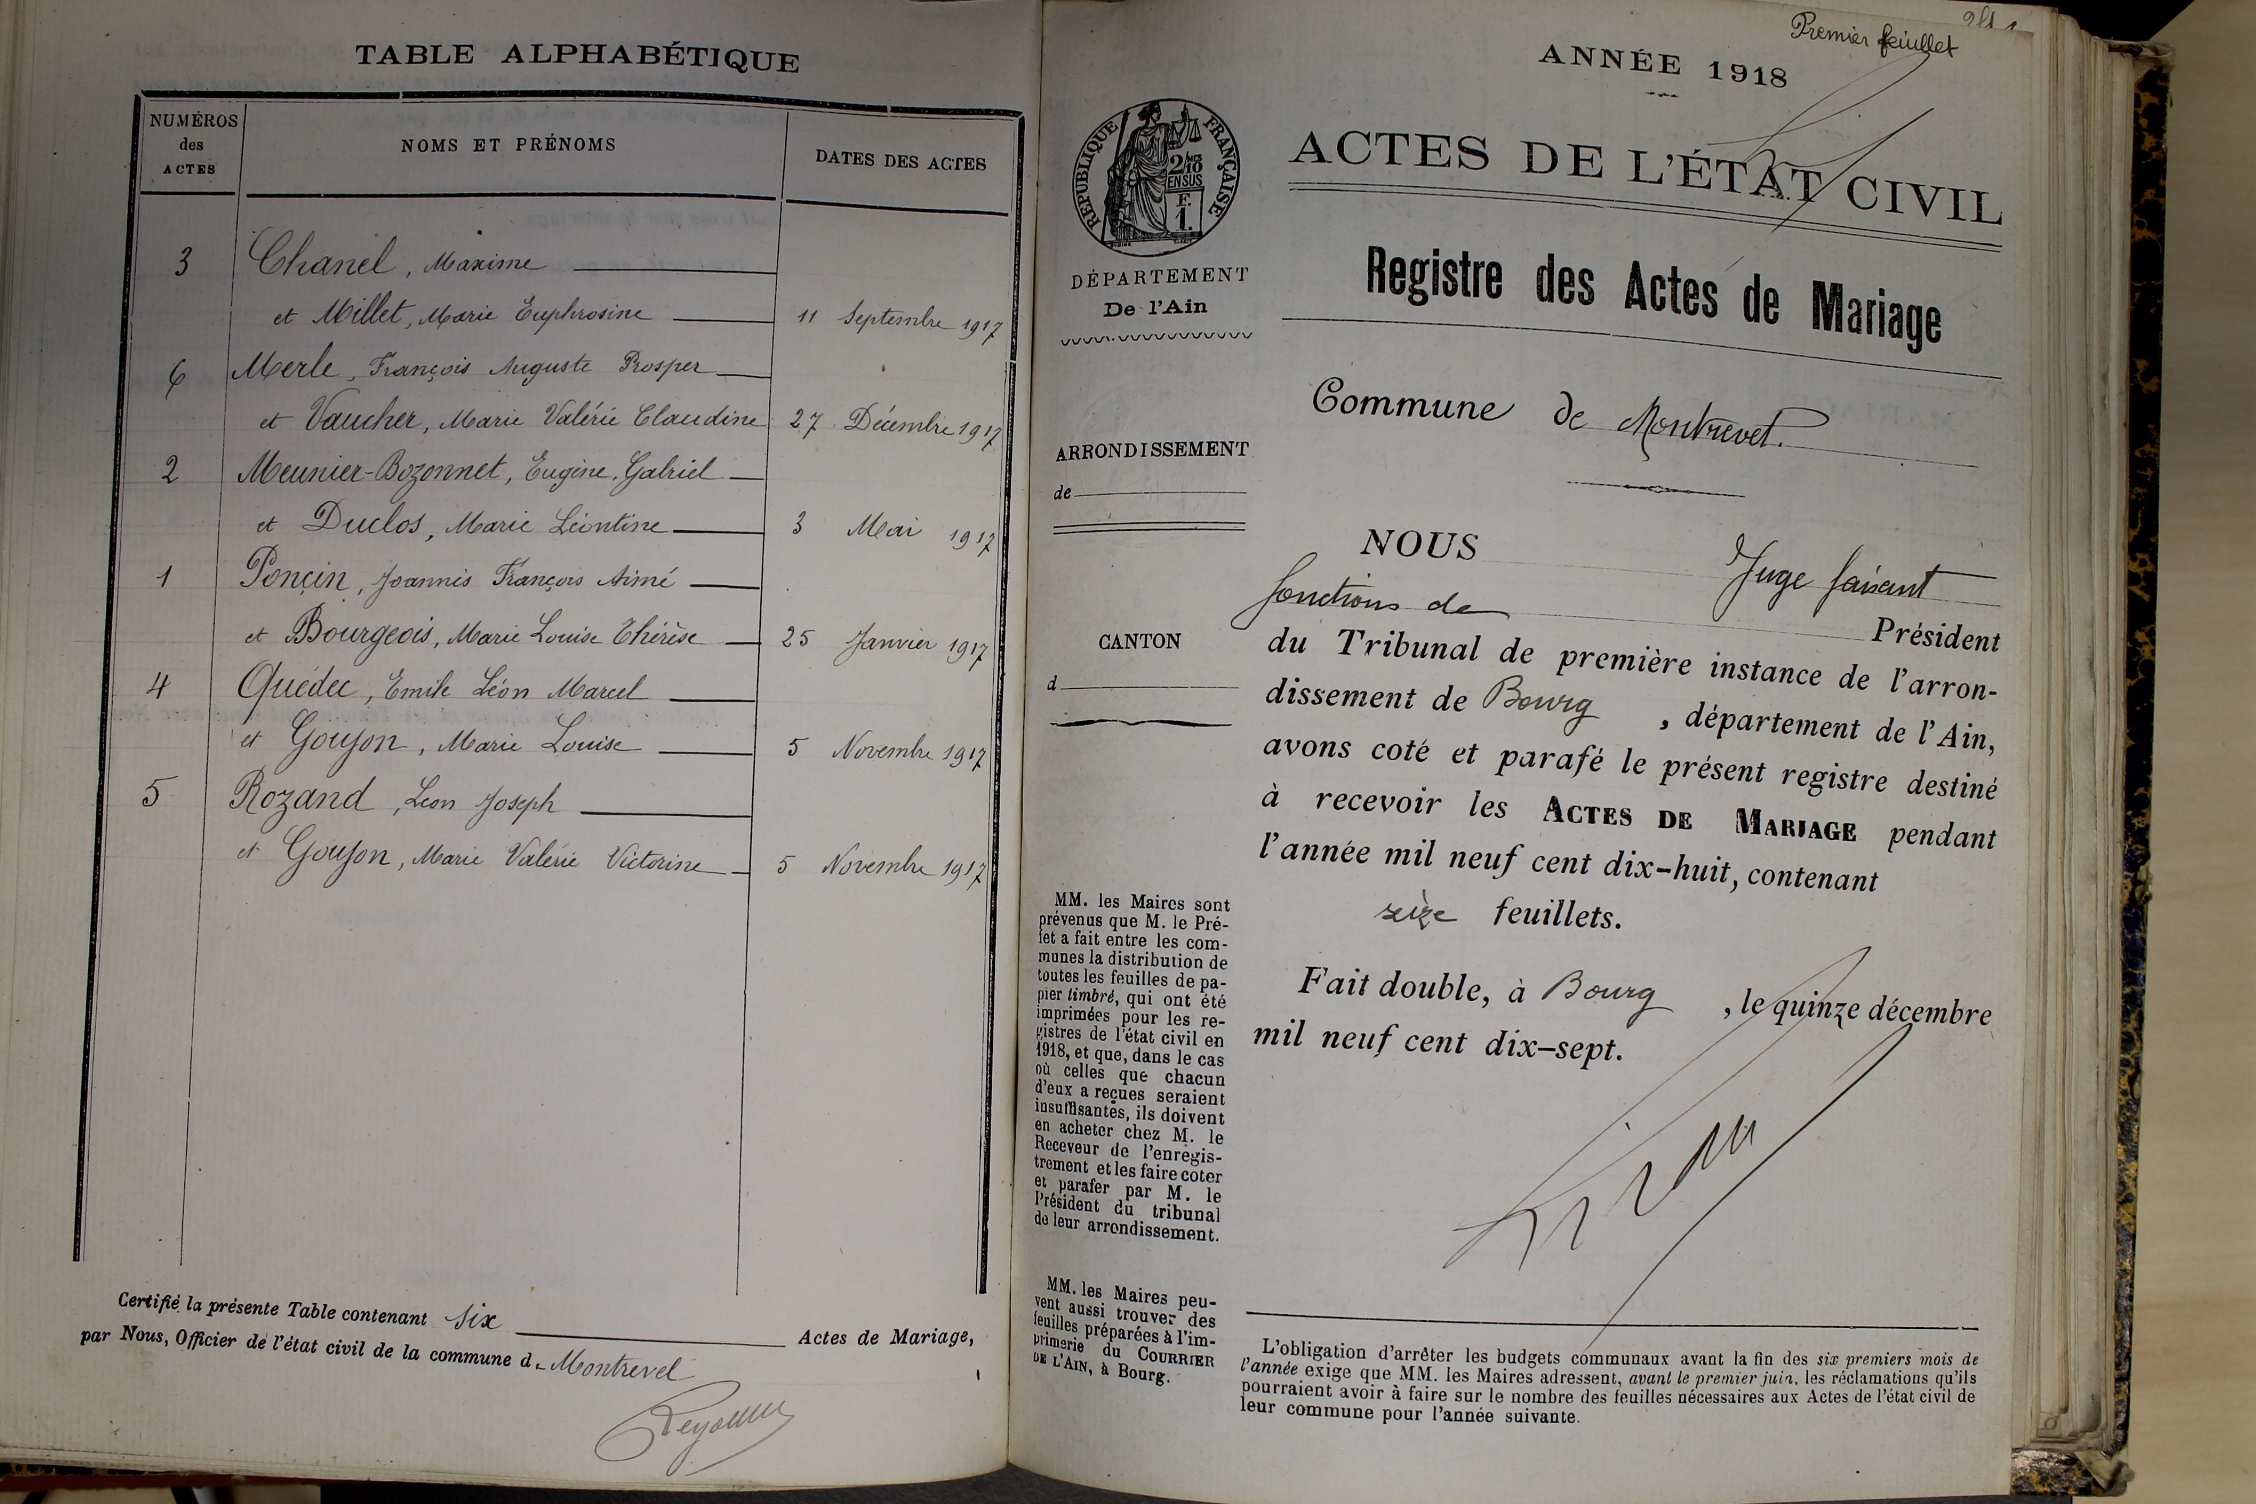 TABLE ALPHABÉTIQUE
NUMÉROS
des
ACTES
NOMS ET PRÉNOMS
DATES DES ACTES
3 Chanel, Maxime
et Millet, Marie Euphrosine 11 Septembre 1917
6 Merle, François Auguste Prosper
et Vaucher, Marie Valérie Claudine 27 Décembre 1917
2 Meunier-Bozonnet, Eugène, Gabriel
et Duclos, Marie Léontine 3 Mai 1917
1 Ponçin, Joannis François Aimé
et Bourgeois, Marie Louise Thérèse 25 Janvier 1917
4 Quédec, Emile Léon Marcel
et Goujon, Marie Louise 5 Novembre 1917
5 Rozand, Léon Joseph
et Goujon, Marie Valérie Victorine 5 Novembre 1917
Certifié la présente Table contenant six Actes de Mariage,
par Nous, Officier de l'état civil de la commune de Montrevel
Premier feuillet
ANNÉE 1918
RÉPUBLIQUE FRANÇAISE
2/10
EN SUS
F.
1.
DÉPARTEMENT
De l'Ain
ARRONDISSEMENT
de
CANTON
d
MM. les Maires sont
prévenus que M. le Pré-
fet a fait entre les com-
munes la distribution de
toutes les feuilles de pa-
pier timbré, qui ont été
imprimées pour les re-
gistres de l'état civil en
1918, et que, dans le cas
où celles que chacun
d'eux a reçues seraient
insuffisantes, ils doivent
en acheter chez M. le
Receveur de l'enregis-
trement et les faire coter
et parafer par M. le
Président du tribunal
de leur arrondissement.
MM. les Maires peu-
vent aussi trouver des
feuilles préparées à l'im-
primerie du COURRIER
DE L'AIN, à Bourg.
ACTES DE L'ÉTAT CIVIL
Registre des Actes de Mariage
Commune de Montrevel.
NOUS Juge faisant
fonctions de Président
du Tribunal de première instance de l'arron-
dissement de Bourg , département de l'Ain,
avons coté et parafé le présent registre destiné
à recevoir les ACTES DE MARIAGE pendant
l'année mil neuf cent dix-huit, contenant
seize feuillets.
Fait double, à Bourg , le quinze décembre
mil neuf cent dix-sept.
L'obligation d'arrêter les budgets communaux avant la fin des six premiers mois de
l'année exige que MM. les Maires adressent, avant le premier juin, les réclamations qu'ils
pourraient avoir à faire sur le nombre des feuilles nécessaires aux Actes de l'état civil de
leur commune pour l'année suivante.